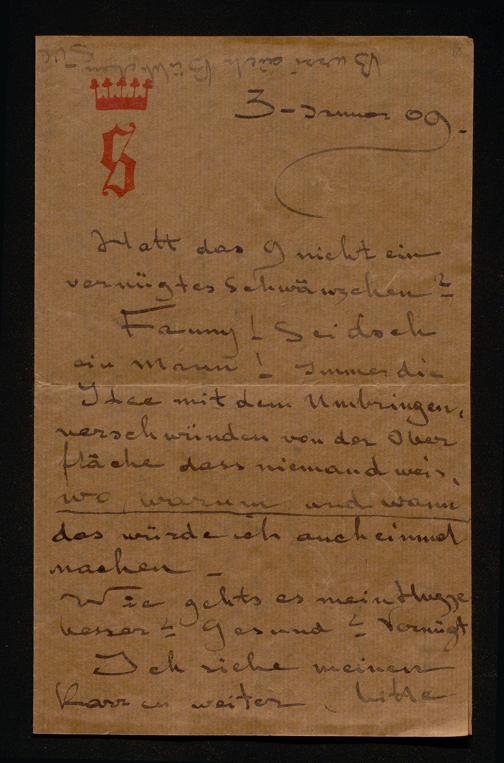 S
3 - Januar 09.
Hatt das 9 nicht ein
vernügtes Schwänzchen?
Fanny! Sei doch
ein Mann! Immer die
Idee mit dem Umbringen,
verschwünden von der Ober
fläche dass niemand weis,
wo, warum und wann
das würde ich auch einmal
machen –
Wie gehts es mein
besser? Gesund? Vernügt
Ich ziehe meinen
Karren weiter, bitte